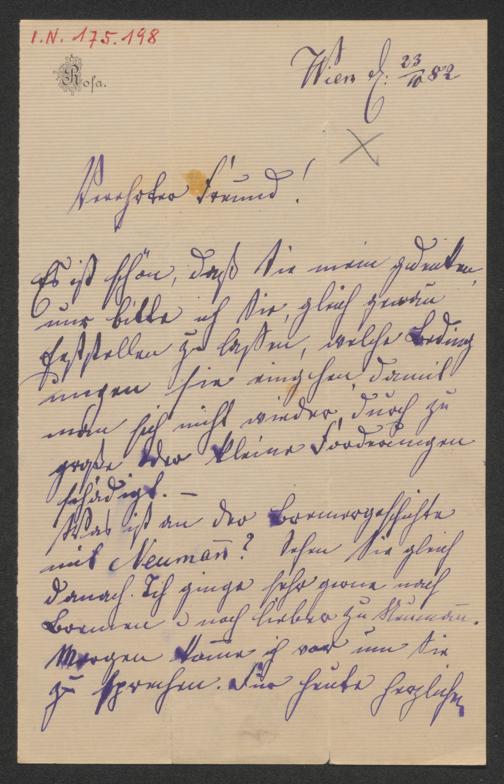 I.N. 175.198
Rosa.
Wien d. 23/10 82
Verehrter Freund!
Es ist schön, daß Sie mein gedenken,
nur bitte ich Sie, gleich genau
feststellen zu laßen, welche Beding
ungen sie eingehen, damit
man sich nicht wieder durch zu
große oder kleine Forderungen
schädigt. –
Was ist an der Bremergeschichte
mit Neumañ? Sehen Sie gleich
danach. Ich ginge sehr gerne nach
Bremen u noch lieber zu Neumañ.
Morgen kome ich vor um Sie
zu sprechen. Für heute herzlichen